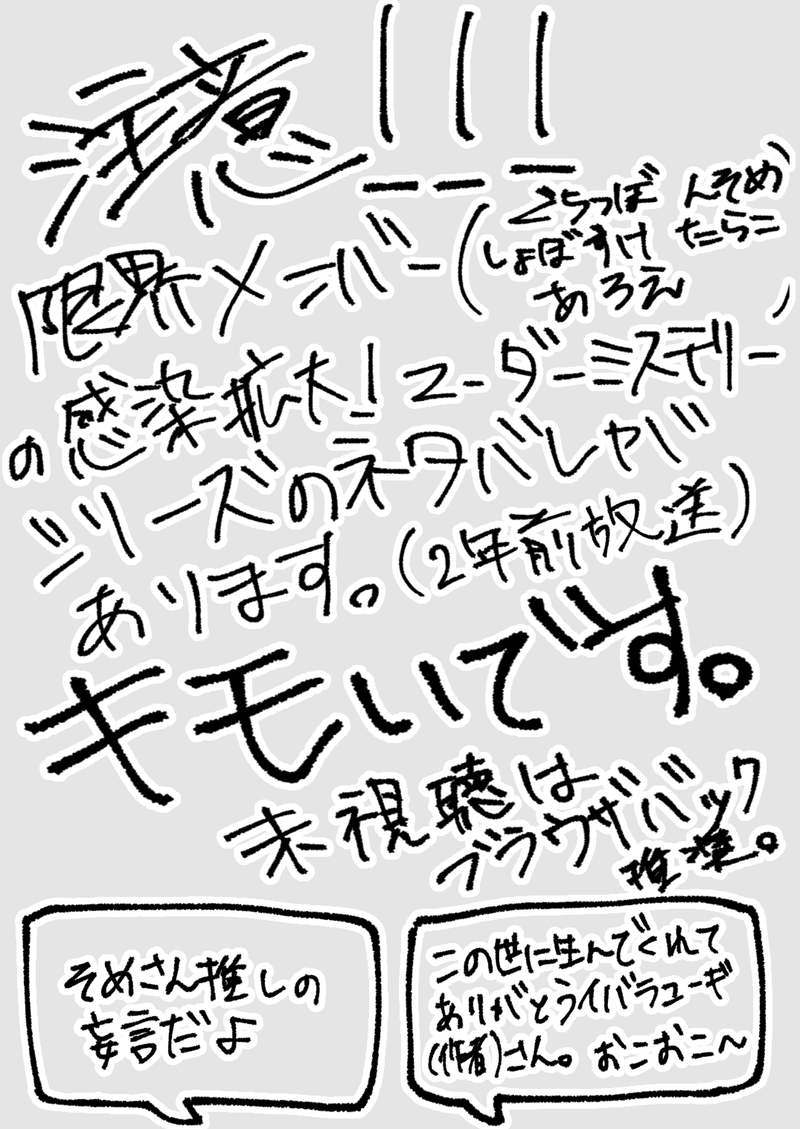 注意!!!
限界メンバー(
ころつぼ んそめ
しょぼすけ たらこ
あろえ
)
の感染拡大!マーダーミステリー
シリーズのネタバレがヤバ
あります。(2年前放送)
キモいです。
未視聴は
ブラウザバック
推奨。
そめさん推しの
妄言だよ
この世に生んでくれて
ありがとうイバラユーギ
(作者)さん。おこおこ〜